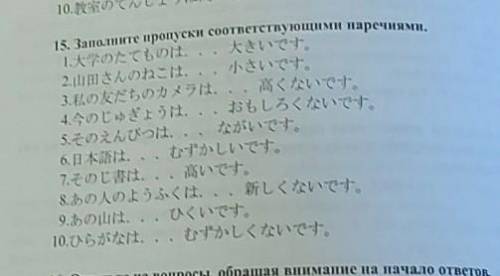 10.教室のてんじょうは
15. Заполните пропуски соответствующими наречиями.
1.大学のたてものは. . . 大きいです。
2.山田さんのねこは. . . 小さいです。
3.私の友だちのカメラは. . . 高くないです。
4.今のじゅぎょうは. . . おもしろくないです。
5.そのえんぴつは. . . ながいです。
6.日本語は. . . むずかしいです。
7.そのじ書は. . . 高いです。
8.あの人のようふくは. . . 新しくないです。
9.あの山は. . . ひくいです。
10.ひらがなは. . . むずかしくないです。
вопросы, обращая внимание на начало ответов.